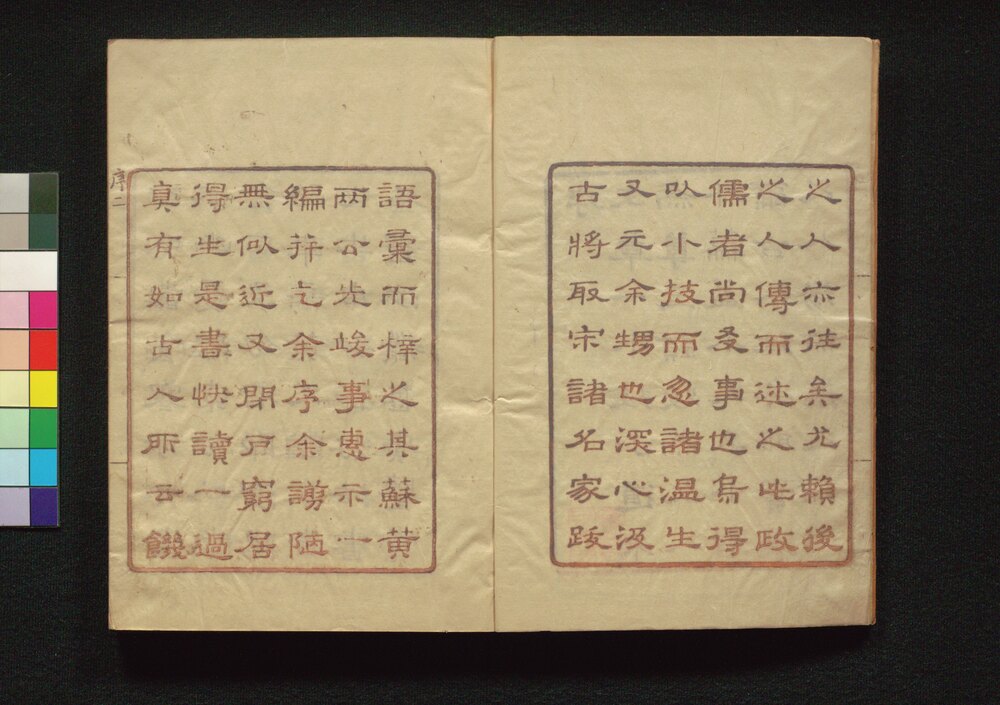 之人亦往矣尤賴後
之人傳而述之此政
儒者尚友事也烏得
以小技而忽諸温生
又元余甥也深心汲
古將取宋諸名家跋
語彙而梓之其蘇黄
兩公先竣事惠示一
編幷乞余序余謝陋
無似近又閉戸窮居
得生是書快讀一過
真有如古人所云饑
序二